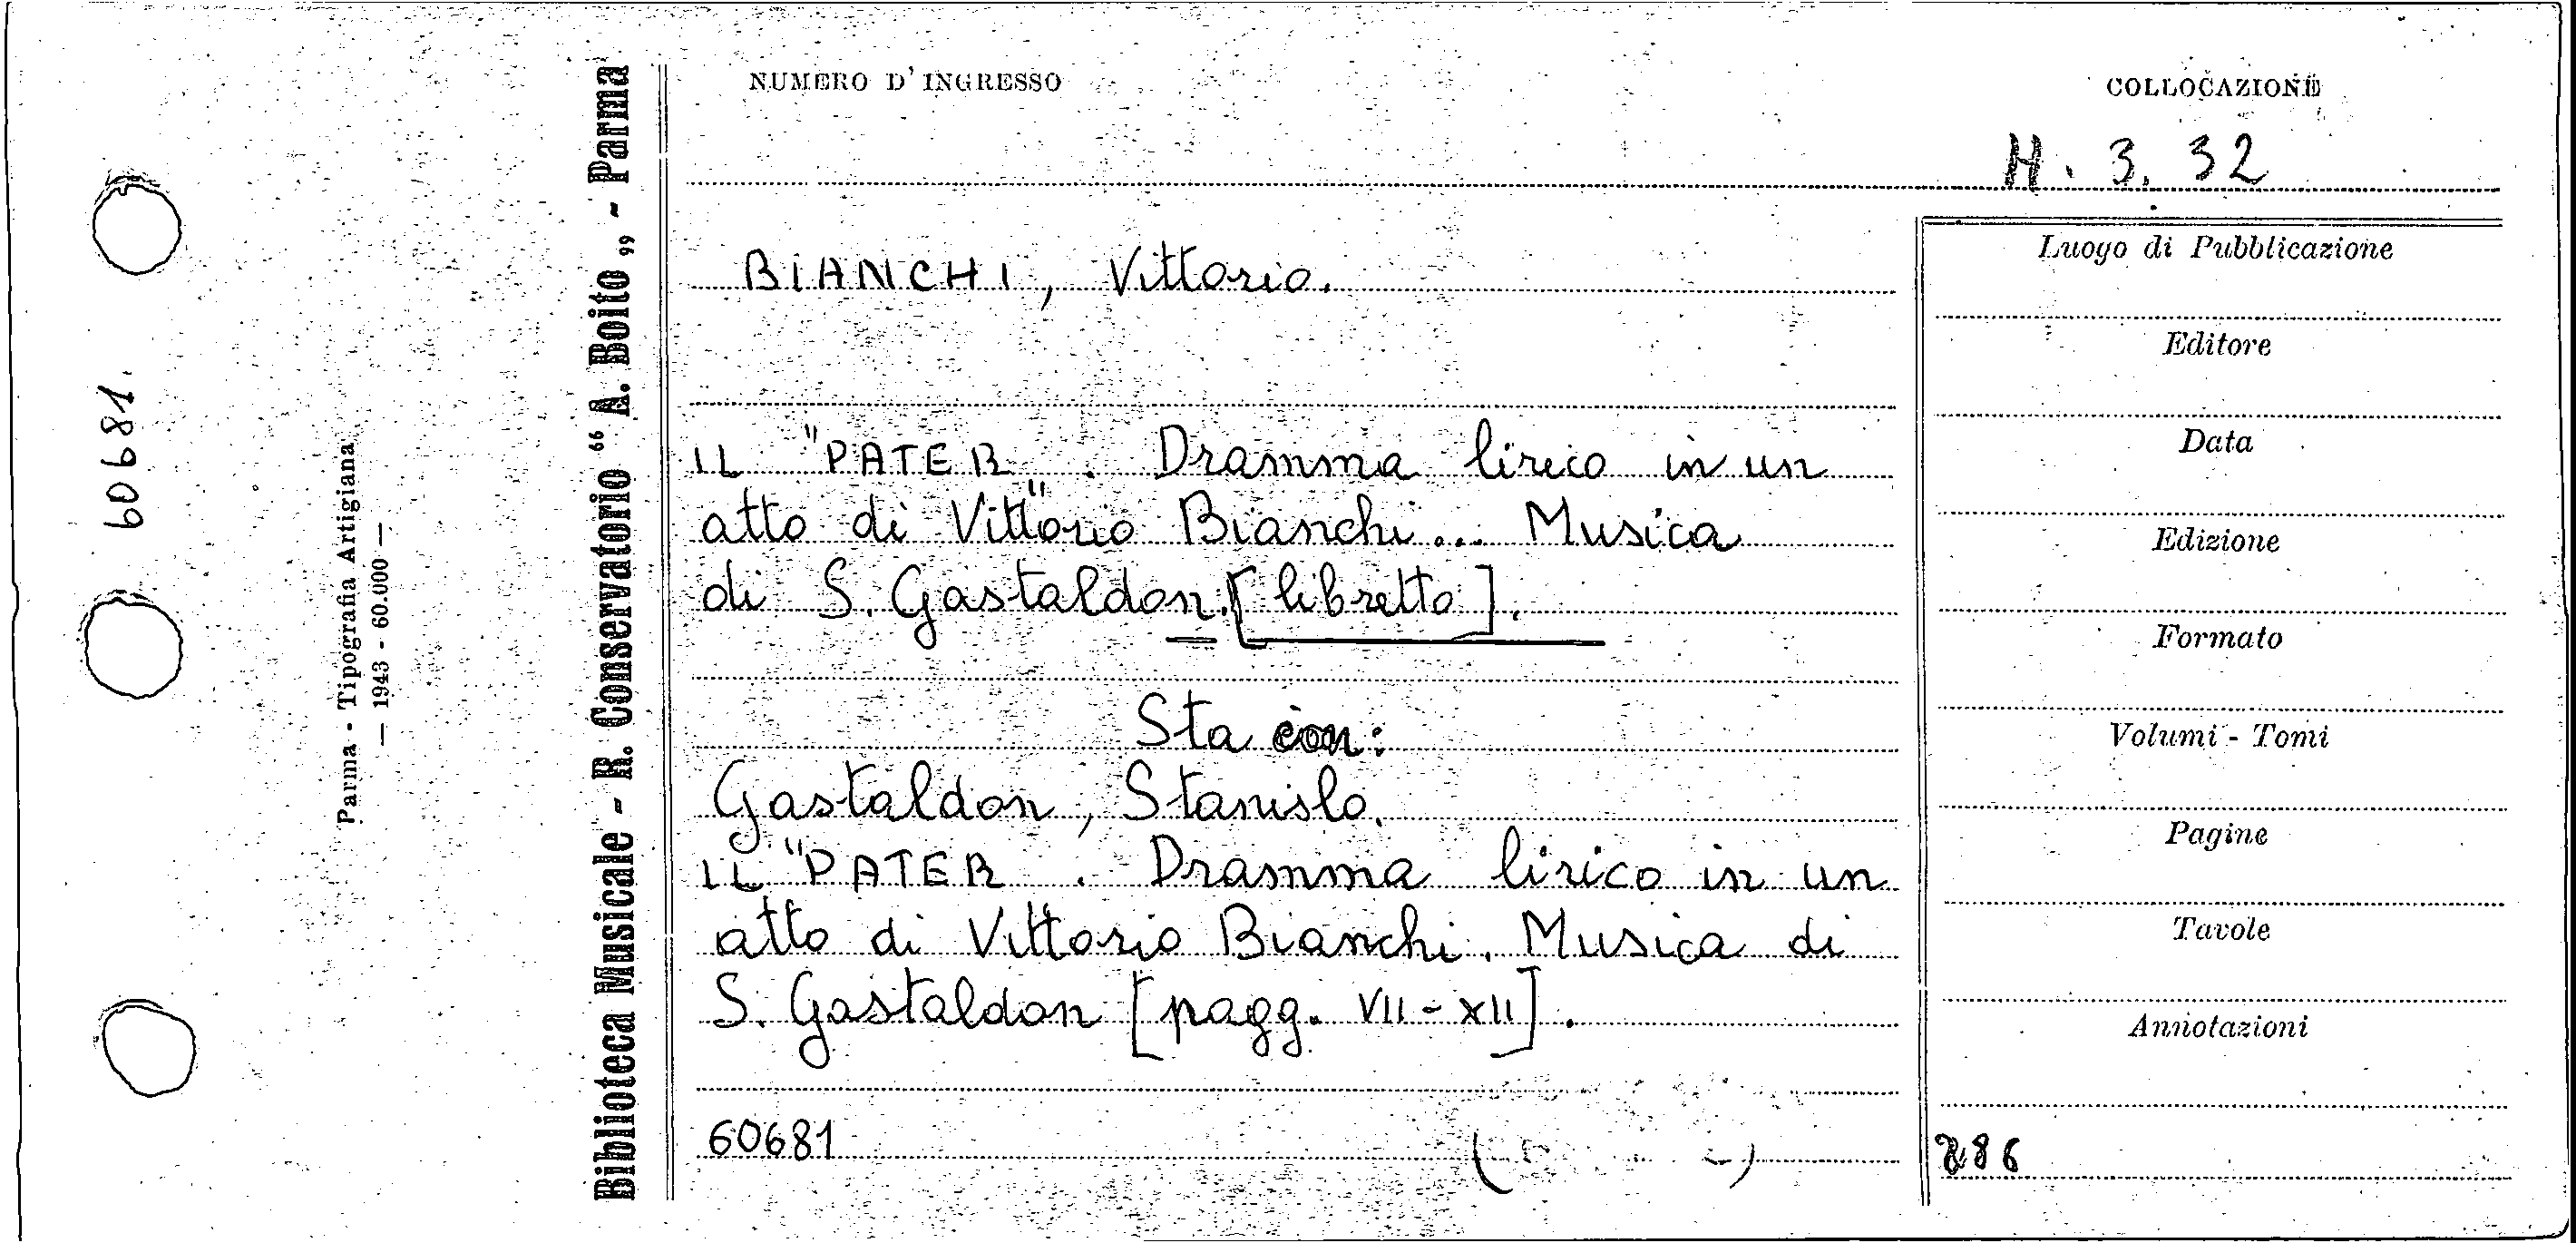 NUMERO D'INGRESSO
COLLOCAZIONE
H. 3. 32
BIANCHI, Vittorio.
IL "PATER". Dramma lirico in un
atto di Vittorio Bianchi... Musica
di S. Gastaldon.[libretto].
Sta con:
Gastaldon, Stanislo.
IL "PATER. Dramma lirico in un
atto di Vittorio Bianchi. Musica di
S. Gastaldon [pagg. VII-XII].
60681
Luogo di Pubblicazione
Editore
Data
Edizione
Formato
Volumi - Tomi
Pagine
Tavole
Annotazioni
286
Biblioteca Musicale - R. Conservatorio “ A. Boito „ - Parma
Parma - Tipografia Artigiana
— 1943 - 60.000 —
60681